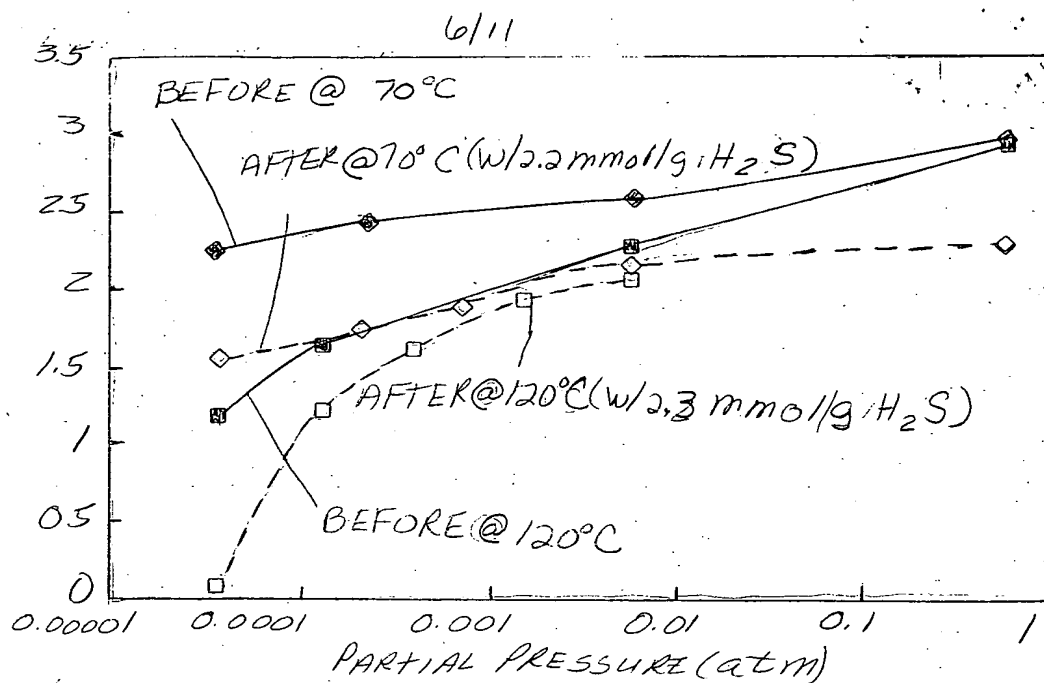 6/11
3.5
BEFORE @ 70°C
3
AFTER @ 70°C (W/2.2 mmol/g H₂S)
2.5
2
1.5
AFTER @ 120°C (W/2.3 mmol/g H₂S)
1
05
BEFORE @ 120°C
0
0.00001 0.0001 0.001 0.01 0.1 1
PARTIAL PRESSURE (atm)